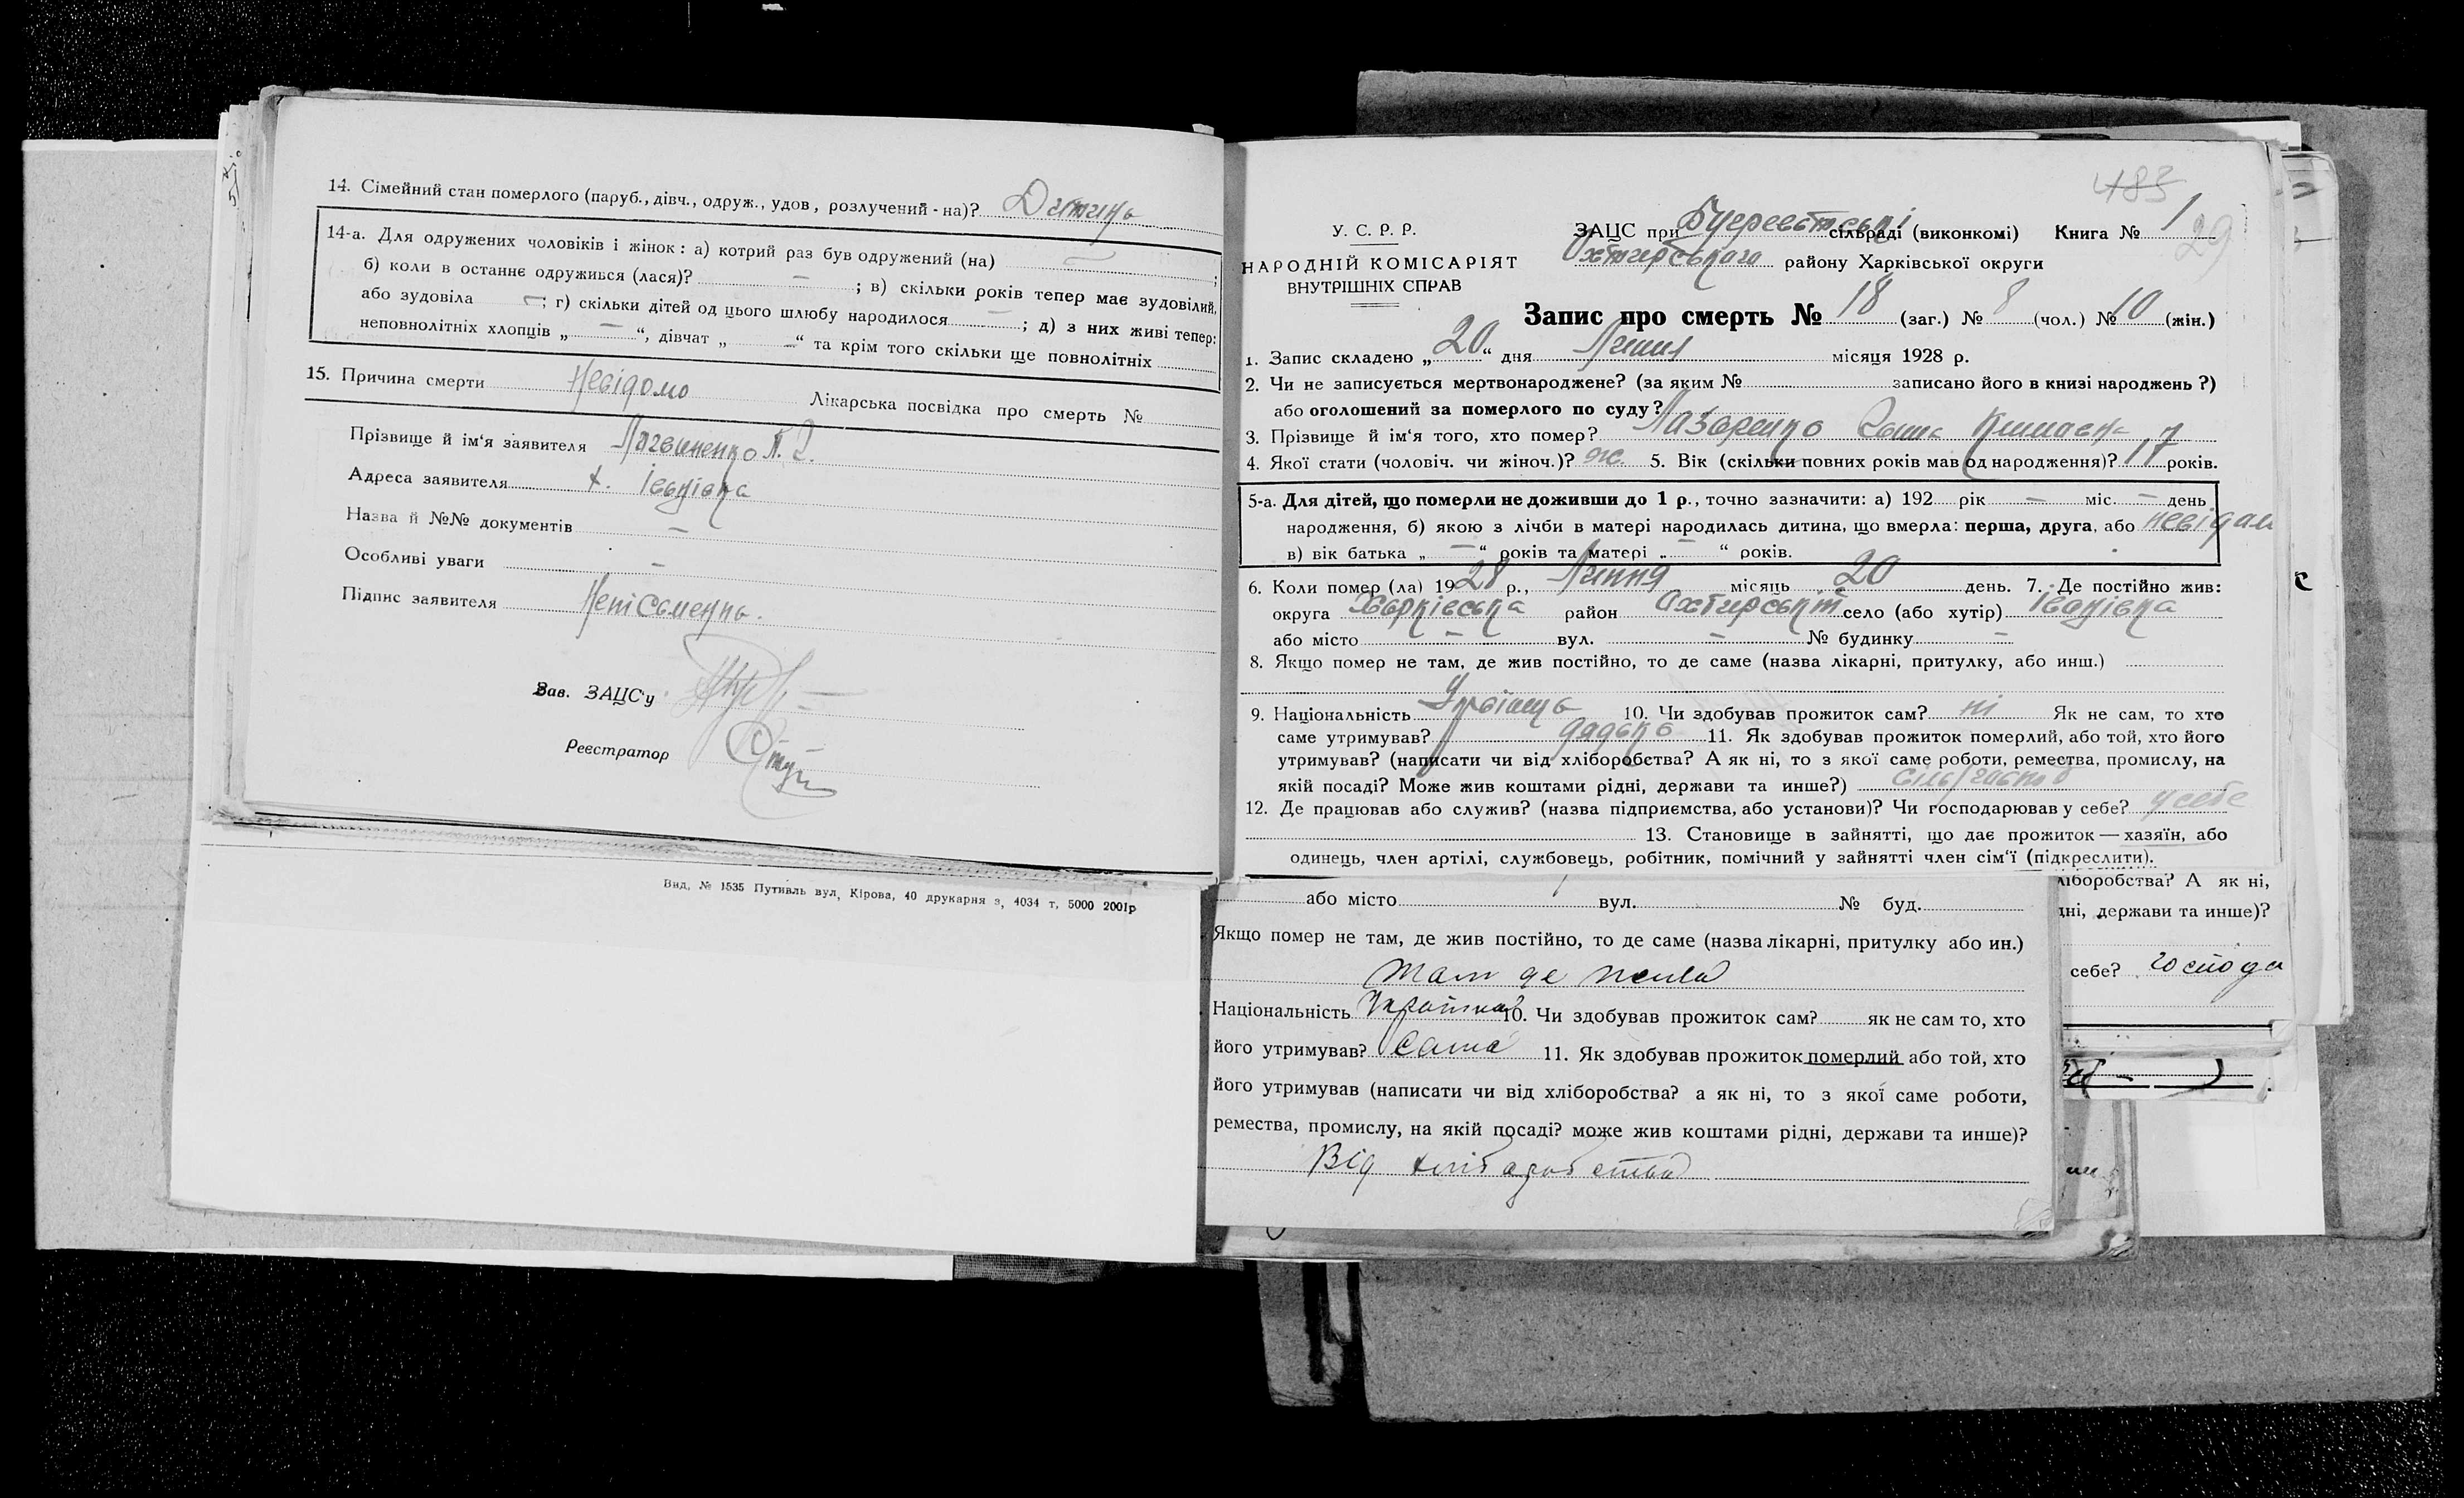 14. Сімейний стан померлого (паруб., дівч., одруж., удов, розлучений-на)? Дитина
14-а. Для одружених чоловіків і жінок: а) котрий раз був одружений (на) — ;
б) коли в останнє одружився (лася)? — ; в) скільки років тепер має зудовілий,
або зудовіла — ; г) скільки дітей од цього шлюбу народилося — ; д) з них живі тепер:
неповнолітніх хлопців „ — “, дівчат „ — “ та крім того скільки ще повнолітніх
15. Причина смерти Невідомо Лікарська посвідка про смерть №
Прізвище й ім‘я заявителя
Адреса заявителя х. Іванівка
Назва й №№ документів —
Особливі уваги —
Підпис заявителя Неписьменна.
Зав. ЗАЦС‘у
Реєстратор
Вид. № 1535 Путивль вул, Кірова, 40 друкарня з, 4034 т, 5000 2001р
483
29
У. С. Р. Р.
НАРОДНІЙ КОМІСАРІЯТ
ВНУТРІШНІХ СПРАВ
ЗАЦС при сільраді (виконкомі) Книга № 1
Охтирського району Харківської округи
Запис про смерть № 18 (заг.) № 8 (чол.) № 10 (жін.)
1. Запис складено „ 20 “ дня Липня місяця 1928 р.
2. Чи не записується мертвонароджене? (за яким № записано його в книзі народжень ?)
або оголошений за померлого по суду?
3. Прізвище й ім‘я того, хто помер? Лазоренко
4. Якої стати (чоловіч. чи жіноч.)? ж. 5. Вік (скільки повних років мав од народження)? 17 років.
5-а. Для дітей, що померли не доживши до 1 р., точно зазначити: а) 192 рік — міс. — день
народження, б) якою з лічби в матері народилась дитина, що вмерла: перша, друга, або невідом
в) вік батька „ — “ років та матері „ — “ років.
6. Коли помер (ла) 1928 р., Липня місяць 20 день. 7. Де постійно жив:
округа Харківська район Охтирський село (або хутір) Іванівка
або місто — вул. — № будинку —
8. Якщо помер не там, де жив постійно, то де саме (назва лікарні, притулку, або инш.)
9. Національність 10. Чи здобував прожиток сам? ні Як не сам, то хто
саме утримував? дядько 11. Як здобував прожиток померлий, або той, хто його
утримував? (написати чи від хліборобства? А як ні, то з якої саме роботи, ремества, промислу, на
якій посаді? Може жив коштами рідні, держави та инше?)
12. Де працював або служив? (назва підприємства, або установи)? Чи господарював у себе? у себе
13. Становище в зайнятті, що дає прожиток — хазяїн, або
одинець, член артілі, службовець, робітник, помічний у зайнятті член сім‘ї (підкреслити).
або місто вул. № буд.
Якщо помер не там, де жив постійно, то де саме (назва лікарні, притулку або ин.)
там де жила
Національність Українка 10. Чи здобував прожиток сам? як не сам то, хто
його утримував? Сама 11. Як здобував прожиток померлий або той, хто
його утримував (написати чи від хліборобства? а як ні, то з якої саме роботи,
ремества, промислу, на якій посаді? може жив коштами рідні, держави та инше)?
Від хліборобства
ліборобства? А як ні,
дні, держави та инше)?
себе? господа